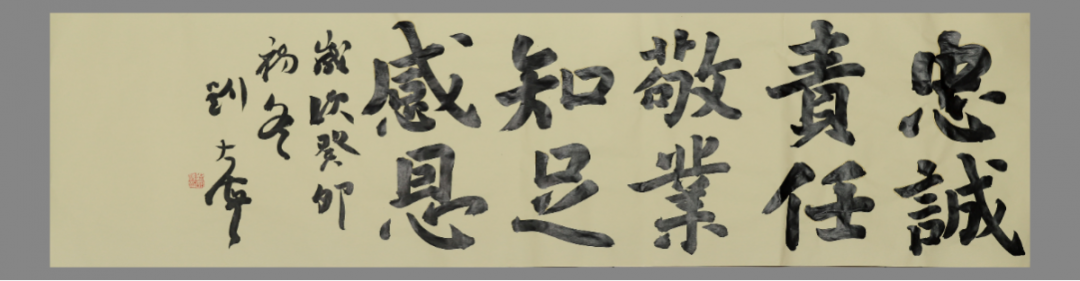 忠誠
責任
敬業
知足
感恩
歲次癸卯
初冬
劉大